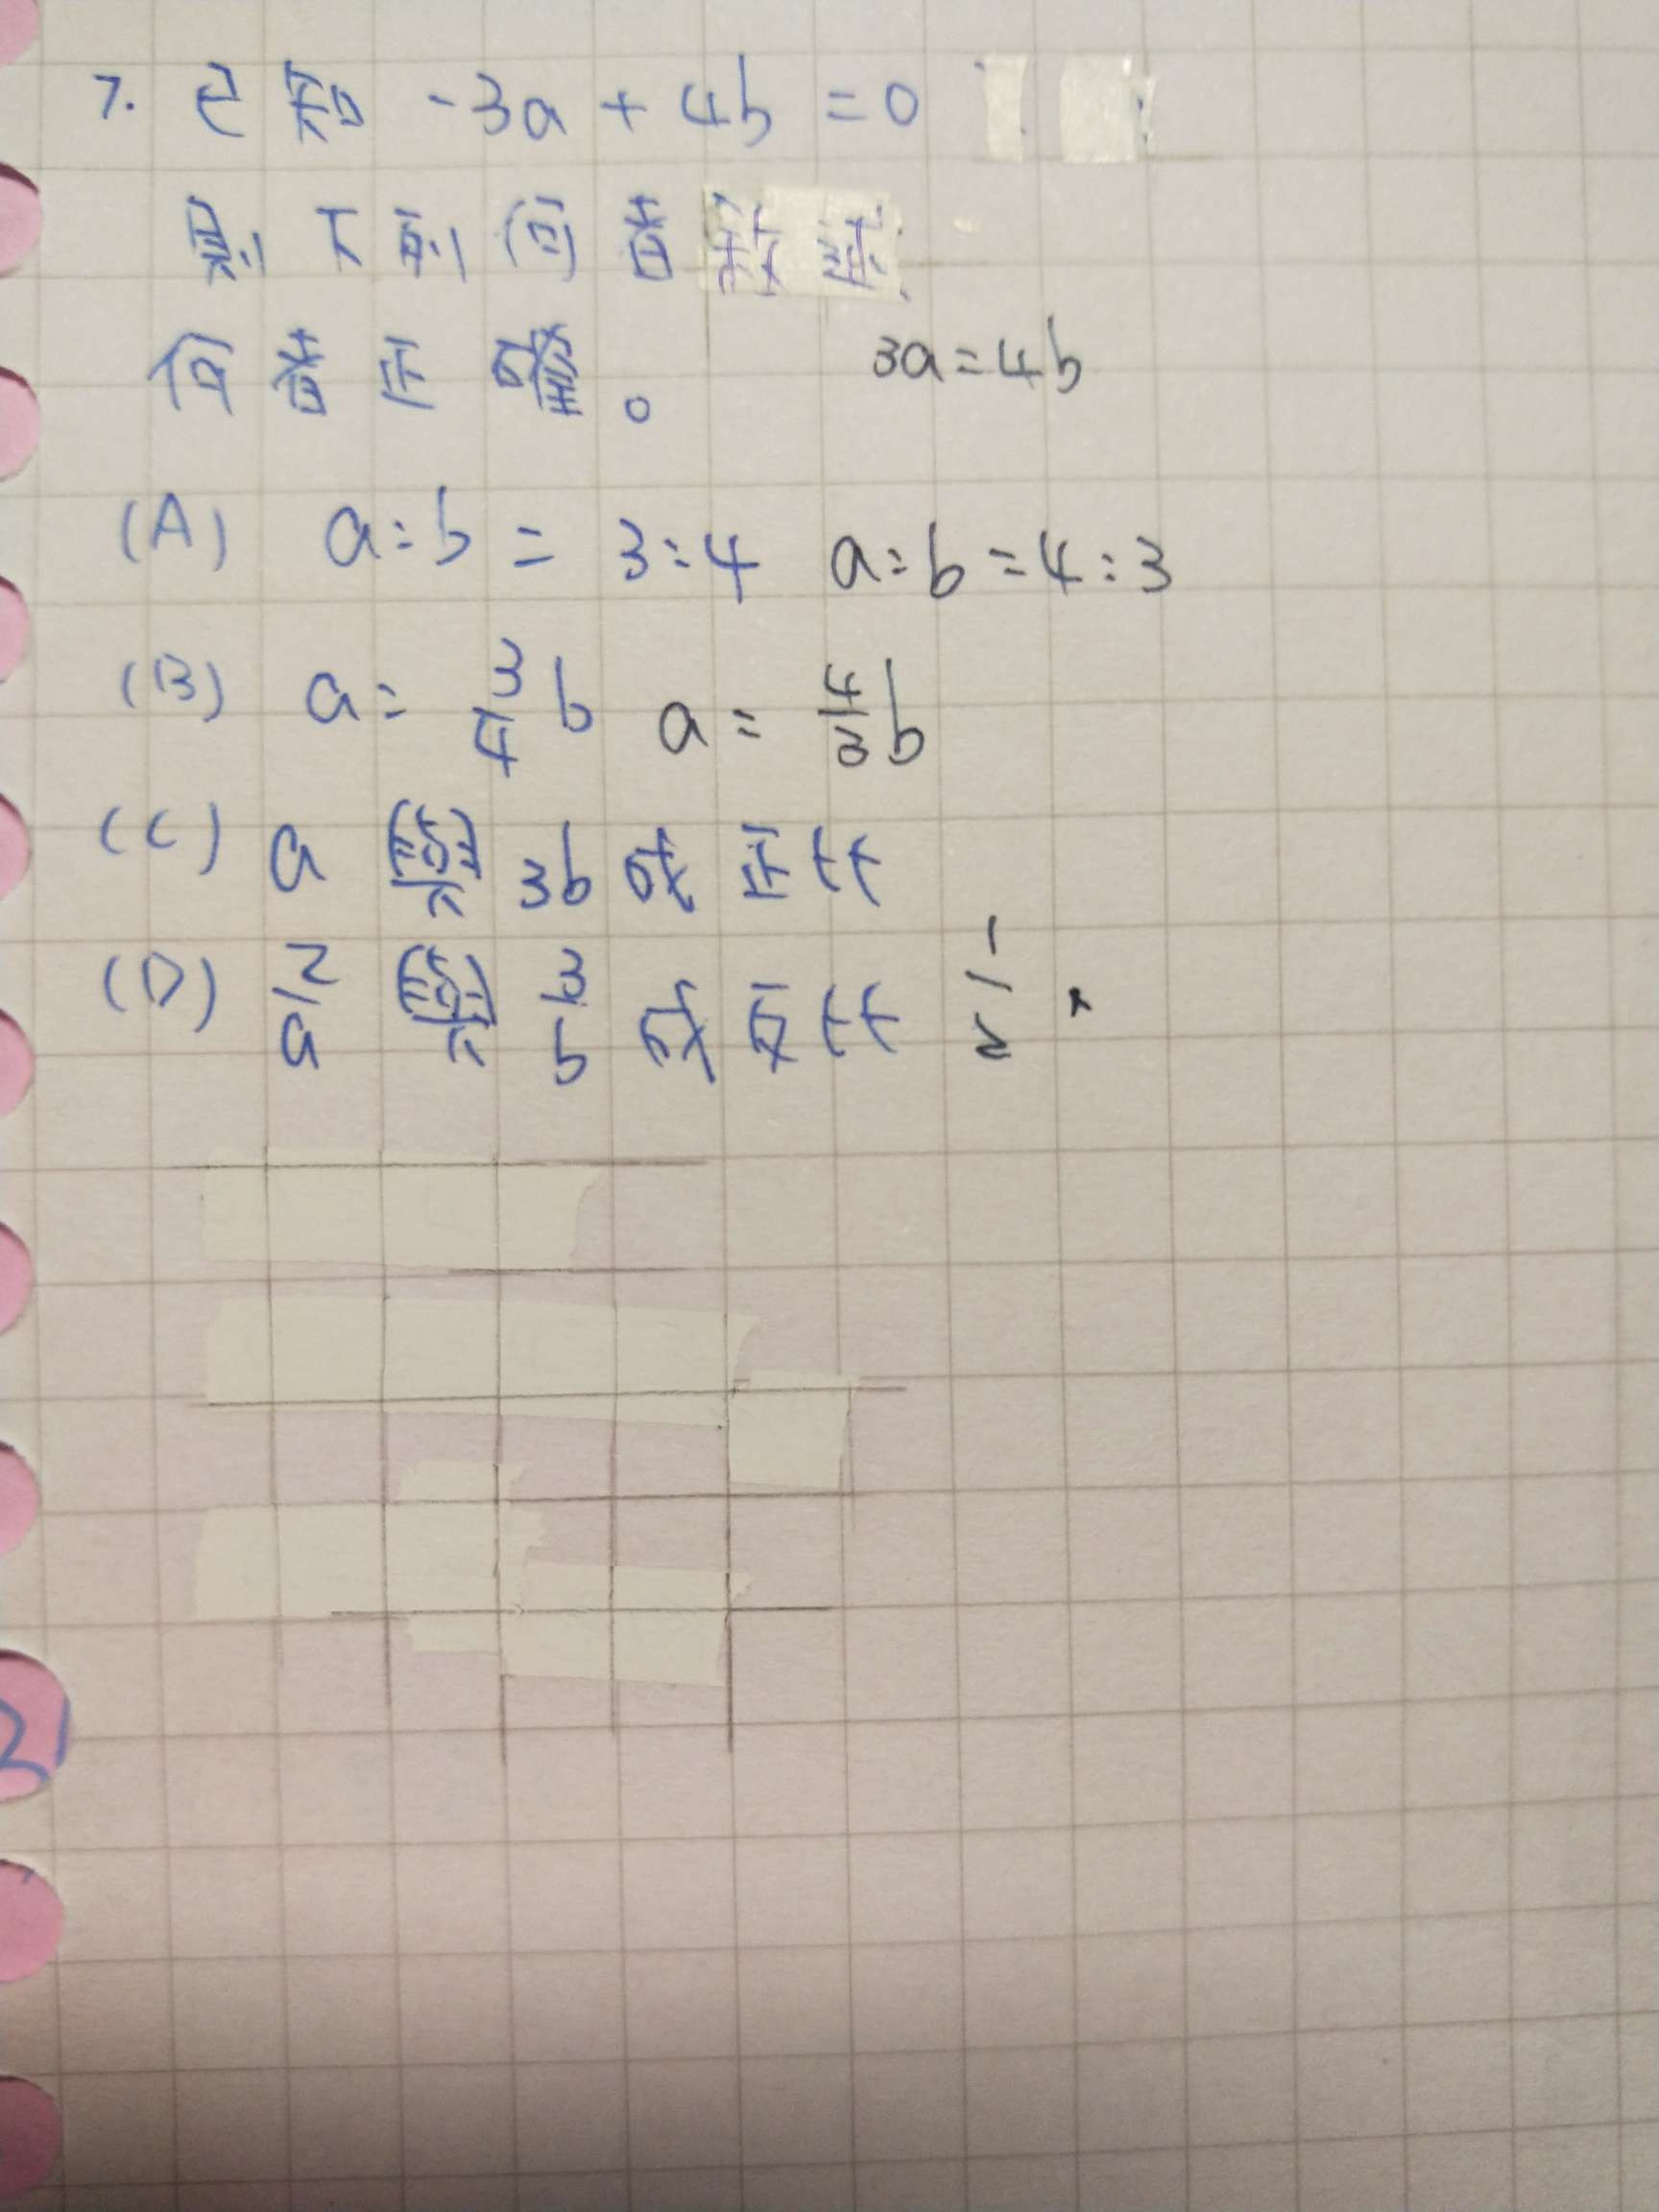 7. 已知 -3a + 4b = 0
則下列何者敘述
何者正確。
3a = 4b
(A) a:b = 3:4 a:b = 4:3
(B) a = 3/4 b a = 4/3 b
(C) a 與 3b 成正比
(D) 2/a 與 3/b 成反比 1/2
21